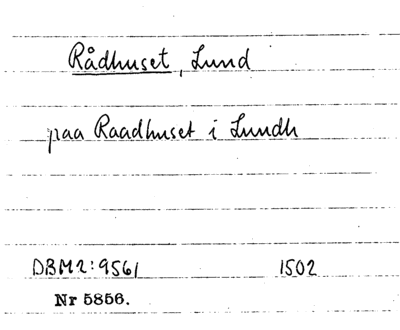 Rådhuset, Lund
paa Raadhuset i Lundh
DBM2:9561 1502
Nr 5856.